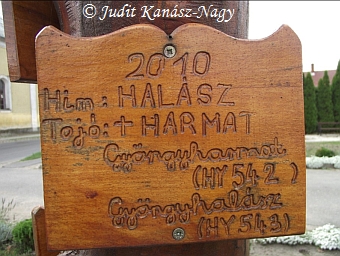 © Judit Kanász-Nagy
2010
Hím: HALÁSZ
Tojó: + HARMAT
Gyöngyharmat
(HY 542)
Gyöngyhalász
(HY 543)